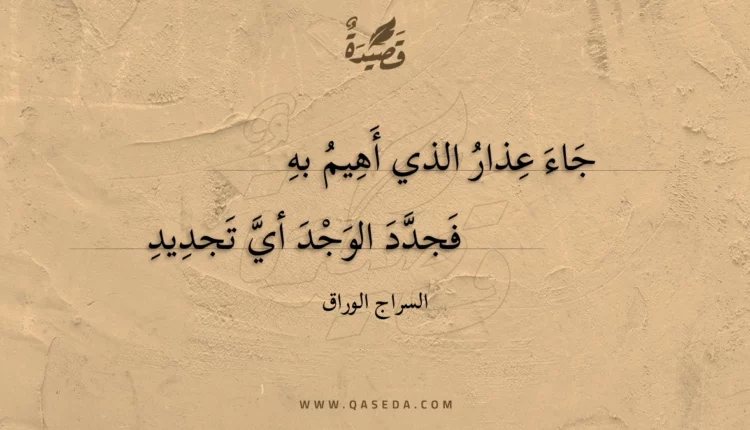 قَصِيدَةٌ
جَاءَ عِذارُ الذي أَهِيمُ بهِ
فَجدَّدَ الوَجْدَ أيَّ تَجدِيدِ
السراج الوراق
WWW.QASEDA.COM